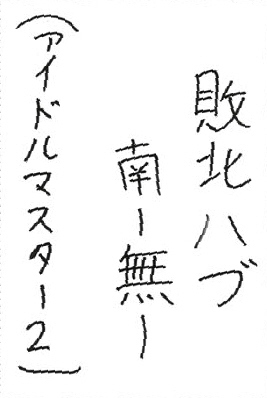 敗北ハブ
南ー無ー
（アイドルマスター2）